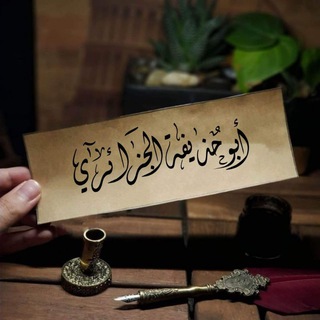 أبو حُذيفة الجزَائريّ